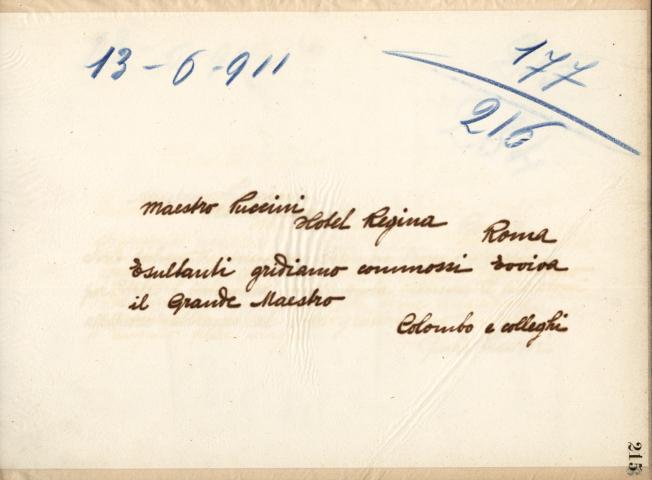 13-6-911
177
216
Maestro Puccini
Hotel Regina
Roma
Esultanti gridiamo commossi Evviva
il Grande Maestro
Colombo e colleghi
215